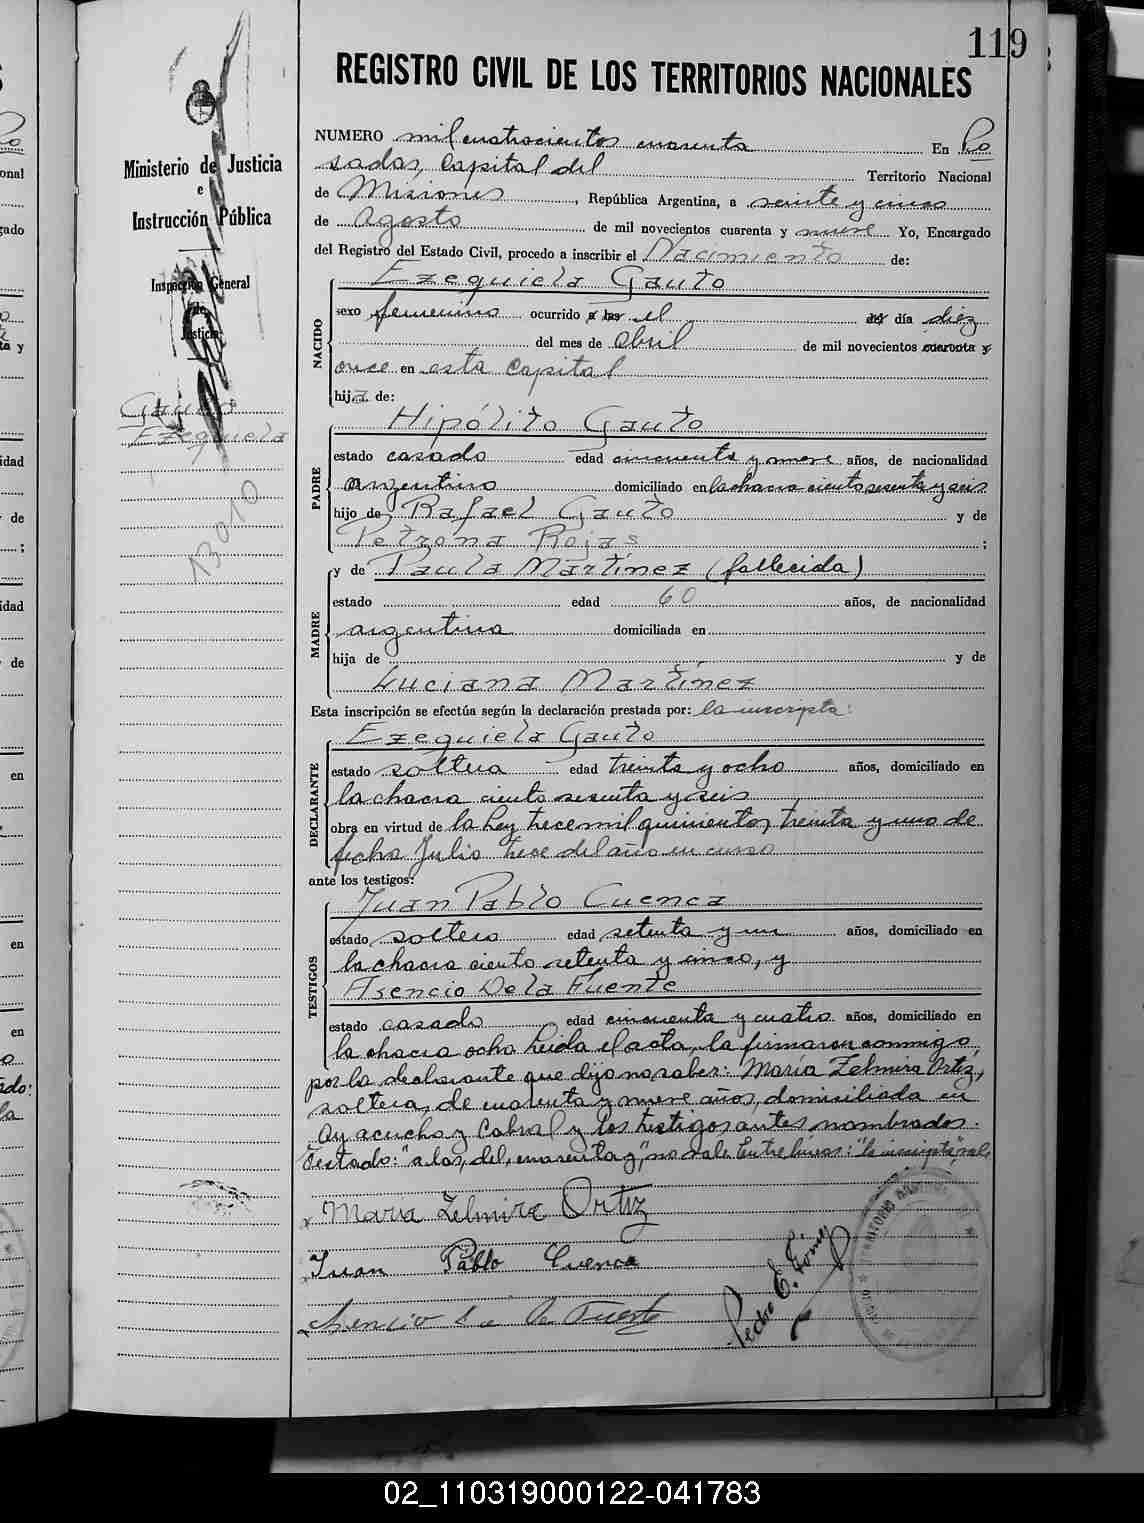 119
REGISTRO CIVIL DE LOS TERRITORIOS NACIONALES
Ministerio de Justicia
e
Instrucción Pública
Inspección General
de
Justicia
Gauto
Ezequiela
13010
NUMERO mil cuatrocientos cuarenta En Po
sadas, Capital del Territorio Nacional
de Misiones, República Argentina, a veinte y cinco
de Agosto de mil novecientos cuarenta y nueve Yo, Encargado
del Registro del Estado Civil, procedo a inscribir el Nacimiento de:
NACIDO
Ezequiela Gauto
sexo femenino ocurrido a las el del día diez
del mes de abril de mil novecientos cuarenta y
once en esta Capital
hija de:
PADRE
Hipólito Gauto
estado casado edad cincuenta y nueve años, de nacionalidad
argentino domiciliado en la chacra ciento sesenta y seis
hijo de Rafael Gauto y de
Petrona Rojas ;
MADRE
y de Paula Martínez (fallecida)
estado edad 60 años, de nacionalidad
argentina domiciliada en
hija de y de
Luciana Martínez
Esta inscripción se efectúa según la declaración prestada por: la inscripta:
DECLARANTE
Ezequiela Gauto
estado soltera edad treinta y ocho años, domiciliado en
la chacra ciento sesenta y seis
obra en virtud de la Ley trece mil quinientos treinta y uno de
fecha Julio trece del año en curso
ante los testigos:
TESTIGOS
Juan Pablo Cuenca
estado soltero edad setenta y un años, domiciliado en
la chacra ciento setenta y cinco, y
Asencio De la Fuente
estado casado edad cincuenta y cuatro años, domiciliado en
la chacra ocho. Leida el acta, la firmaron conmigo,
por la declarante que dijo no saber: María Zelmira Ortiz,
soltera, de cuarenta y nueve años, domiciliada en
Ayacucho y Cabral y los testigos antes nombrados.
Testado: "a las, del, cuarenta y," no vale. Entre líneas: "la inscripta", vale
María Zelmira Ortiz
Juan Pablo Cuenca
Asencio De la Fuente
Pedro E. Gómez
02_110319000122-041783